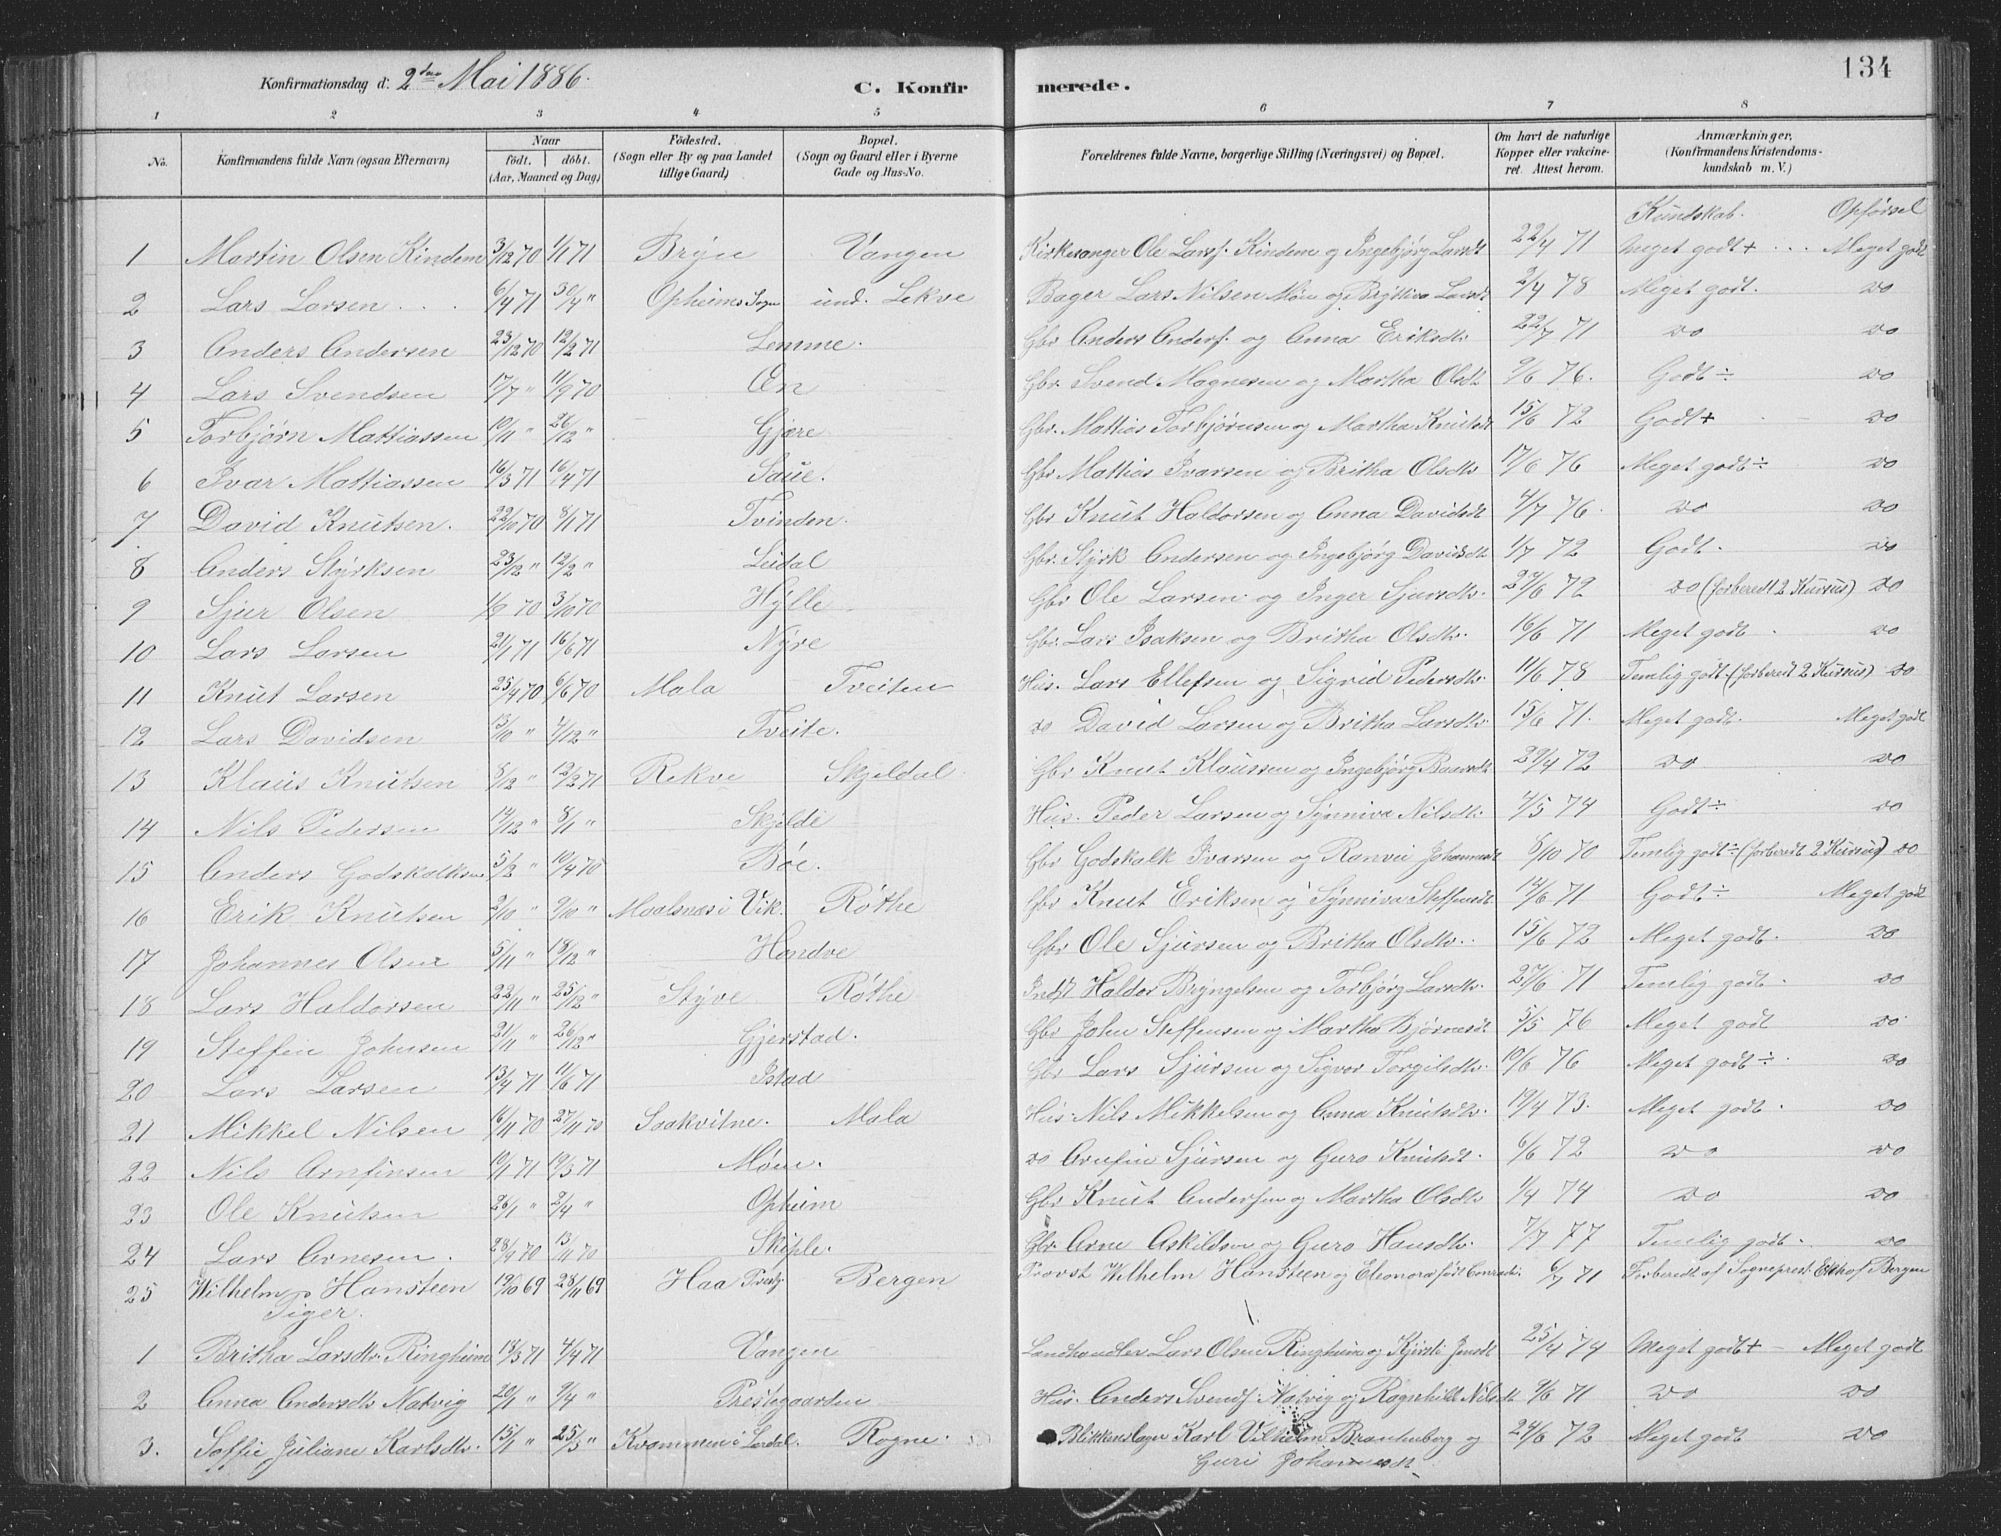 134
Konfirmationsdag d: 2den Mai 1886. C. Konfirmerede.
1 2 3 4 5 6 7 8
No. Konfirmandens fulde Navn (ogsaa Efternavn) Naar født. døbt. (Aar, Maaned og Dag) Fødested. (Sogn eller By og paa Landet tillige Gaard) Bopæl. (Sogn og Gaard eller i Byerne Gade og Hus-No. Forældrenes fulde Navne, borgerlige Stilling (Næringsvei) og Bopæl. Om havt de naturlige Kopper eller vakcineret. Attest herom. Anmærkninger. (Konfirmandens Kristendomskundskab m. V.)
Kundskab. Opførsel
1 Martin Olsen Kindem 3/12 70 1/1 71 Bryn Vangen Kirkesanger Ole Larsf. Kindem og Ingebjørg Larsdt 22/4 71 Meget godt + ... Meget godt
2 Lars Larsen 6/4 71 30/4 " Opheims Sogn und. Lekve Bager Lars Nilsen Møn og Brytteva Larsdt 2/4 78 Meget godt. do
3 Anders Andersen 23/12 70 12/2 71 Lemme. Gbr Anders Andersf. og Anna Eriksdt. 22/7 71 do do
4 Lars Svendsen 17/7 " 11/9 70 Øen Gbr. Svend Magnesen og Martha Olsdt 9/6 76. Godt ÷ do
5 Torbjørn Mattiassen 10/11 " 26/12 " Gjære Gbr. Mattias Torbjørnsen og Martha Knutsdt 15/6 72 Godt + do
6 Ivar Mattiassen 16/3 71 16/4 71 Saue. Gbr. Mattias Ivarsen og Britha Olsdtr 17/6 76 Meget godt ÷ do
7 David Knutsen. 22/10 70 8/1 71 Tvinden. Gbr Knut Haldorsen og Anna Davidsdt 4/7 76. do do
8 Anders Styrksen 23/12 " 12/2 " Leidal Gbr. Styrk Andersen og Ingebjørg Davidsdt 1/7 72 Godt. do
9 Sjur Olsen 1/9 70 3/10 70 Hylle Gbr Ole Larsen og Inger Sjursdtr. 27/6 72 do (forberedt 2 Kursus) do
10 Lars Larsen 21/1 71 16/6 71 Nyre Gbr. Lars Isaksen og Britha Olsdtr. 16/6 71 Meget godt do
11 Knut Larsen 25/4 70 6/6 70 Mala Tveiten Hus. Lars Ellefsen og Sigrid Pedersdtr. 11/6 78 Temlig godt (forberedt 2 Kursus) do
12 Lars Davidsen 13/10 " 4/12 " Tveite. do David Larsen og Britha Larsdtr. 15/6 71. Meget godt. Meget godt
13 Klaus Knutsen 8/12 " 12/2 71 Rekve Skjeldal Gbr Knut Klaussen og Ingebjørg Baarsdt 29/4 72 do do
14 Nils Pedersen 14/12 " 8/1 " Skjelde Hus. Peder Larsen og Synniva Nilsdtr. 4/5 74 Godt ÷ do
15 Anders Godskalksen 5/2 " 10/4 70 Bøe. Gbr Godskalk Ivarsen og Ranvei Johannesdt 8/10 70 Temlig godt ÷ (forberedt 2 Kursus) do
16 Erik Knutsen 2/10 " 9/10 " Maalsnæs i Vik. Røthe Gbr Knut Eriksen og Synniva Steffensdt 14/6 71 Godt ÷ Meget godt
17 Johannes Olsen 5/11 " 18/12 " Hondve Gbr Ole Sjursen og Britha Olsdtr. 15/6 72 Meget godt. do
18 Lars Haldorsen 22/11 " 25/12 " Styve Røthe Indst Haldor Bryngelsen og Torbjørg Larsdtr. 27/6 71 Temlig godt do
19 Steffen Johnsen 21/11 " 26/12 " Gjerstad. Gbr John Steffensen og Martha Bjørnsdt 5/5 76 Meget godt do
20 Lars Larsen 13/4 71 11/6 71 Istad Gbr Lars Sjursen og Sigvor Torgilsdtr. 10/6 76 Meget godt ÷ do
21 Mikkel Nilsen 16/11 70 27/11 70 Saakvitne. Mala Hus. Nils Mikkelsen og Anna Knutsdtr. 19/4 73. Meget godt. do
22 Nils Arnfinsen 10/1 71 19/3 71 Møen. do Arnfin Sjursen og Guro Knutsdt. 6/6 72 do do
23 Ole Knutsen 26/1 " 2/4 " Opheim Gbr Knut Andersen og Martha Olsdtr. 1/4 74 do do
24 Lars Arnesen. 28/9 70 13/11 70 Skiple. Gbr. Arne Askildsen og Guro Hansdtr. 7/7 77 Temlig godt. do
25 Wilhelm Hansteen Tiger. 19/10 69 28/11 69 Haa Prestgj Bergen Provst Wilhelm Hansteen og Eleonora født Conradi. 6/7 71 Forberedt af Sogneprest Ekhof Bergen
1 Britha Larsdtr. Ringheim 18/3 71 4/4 71 Vangen Landhandler Lars Olsen Ringheim og Kjersti Jensdt 25/4 74 Meget godt + Meget godt
2 Anna Andersdtr Natvig 20/1 " 9/4 " Prestegaarden Hus. Anders Svendf. Natvig og Ragnhild Nilsdt 9/6 71 do do
3. Soffie Juliane Karlsdtr. 15/1 " 25/3 " Kvammen i Lerdal. Rogne. Blikkenslager Karl Vilhelm Brantenberg og Guri Johannesdt. 24/6 72 Meget godt do